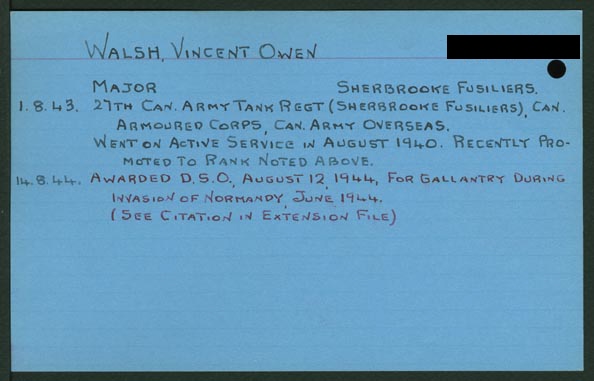 WALSH, VINCENT OWEN
MAJOR SHERBROOKE FUSILIERS.
1.8.43. 27TH CAN. ARMY TANK REGT (SHERBROOKE FUSILIERS), CAN.
ARMOURED CORPS, CAN. ARMY OVERSEAS.
WENT ON ACTIVE SERVICE IN AUGUST 1940. RECENTLY PRO-
MOTED TO RANK NOTED ABOVE.
14.8.44. AWARDED D.S.O., AUGUST 12, 1944, FOR GALLANTRY DURING
INVASION OF NORMANDY, JUNE 1944.
(SEE CITATION IN EXTENSION FILE)